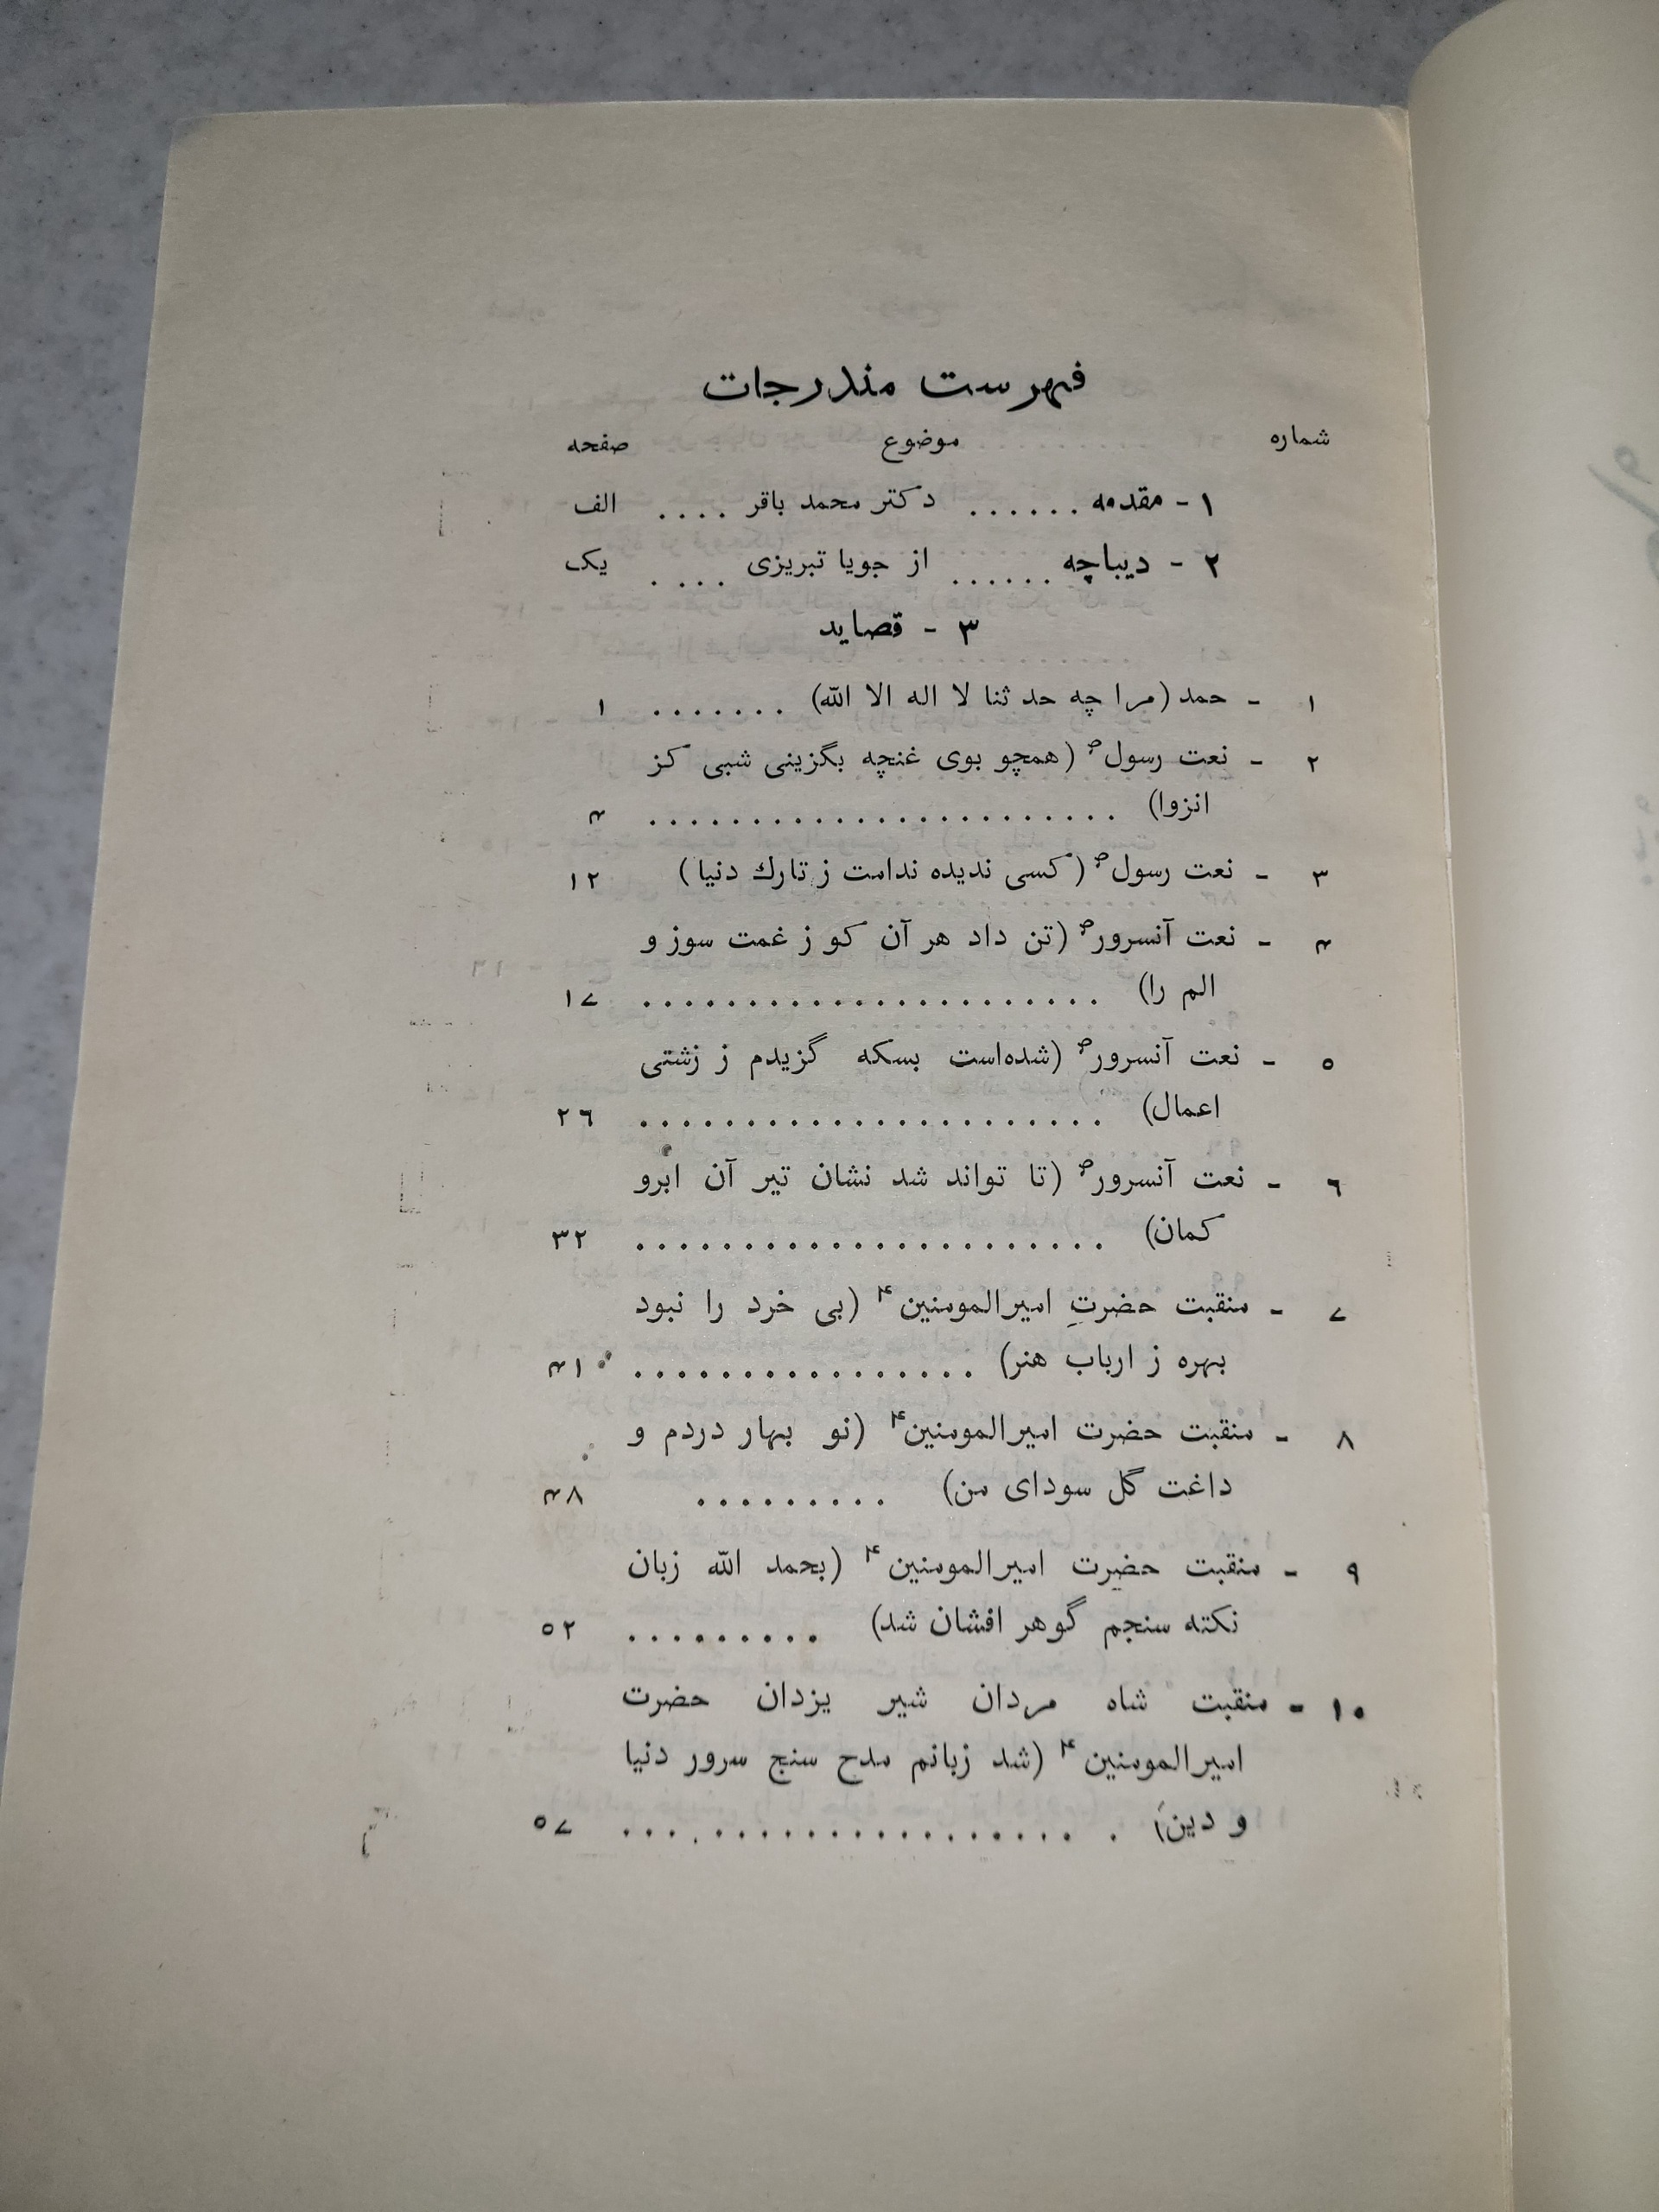 فهرست مندرجات
شماره موضوع صفحه
۱ - مقدمه ...... دکتر محمد باقر .... الف
۲ - دیباچه ...... از جویا تبریزی .... یک
۳ - قصاید
۱ - حمد (مرا چه حد ثنا لا اله الا الله) ....... ۱
۲ - نعت رسول ؐ (همچو بوی غنچه بگزینی شبی کز
انزوا) ....................... ۴
۳ - نعت رسول ؐ (کسی ندیده ندامت ز تارك دنیا) ۱۲
۴ - نعت آنسرور ؐ (تن داد هر آن کو ز غمت سوز و
الم را) ....................... ۱۷
۵ - نعت آنسرور ؐ (شده‌است بسکه گزیدم ز زشتی
اعمال) ....................... ۲۶
۶ - نعت آنسرور ؐ (تا تواند شد نشان تیر آن ابرو
کمان) ....................... ۳۲
۷ - منقبت حضرتِ امیرالمومنین ؑ (بی خرد را نبود
بهره ز ارباب هنر) ................ ۴۱
۸ - منقبت حضرت امیرالمومنین ؑ (نو بهار دردم و
داغت گل سودای من) ......... ۴۸
۹ - منقبت حضرت امیرالمومنین ؑ (بحمد الله زبان
نکته سنجم گوهر افشان شد) ......... ۵۲
۱۰ - منقبت شاه مردان شیر یزدان حضرت
امیرالمومنین ؑ (شد زبانم مدح سنج سرور دنیا
و دین) ..................... ۵۷